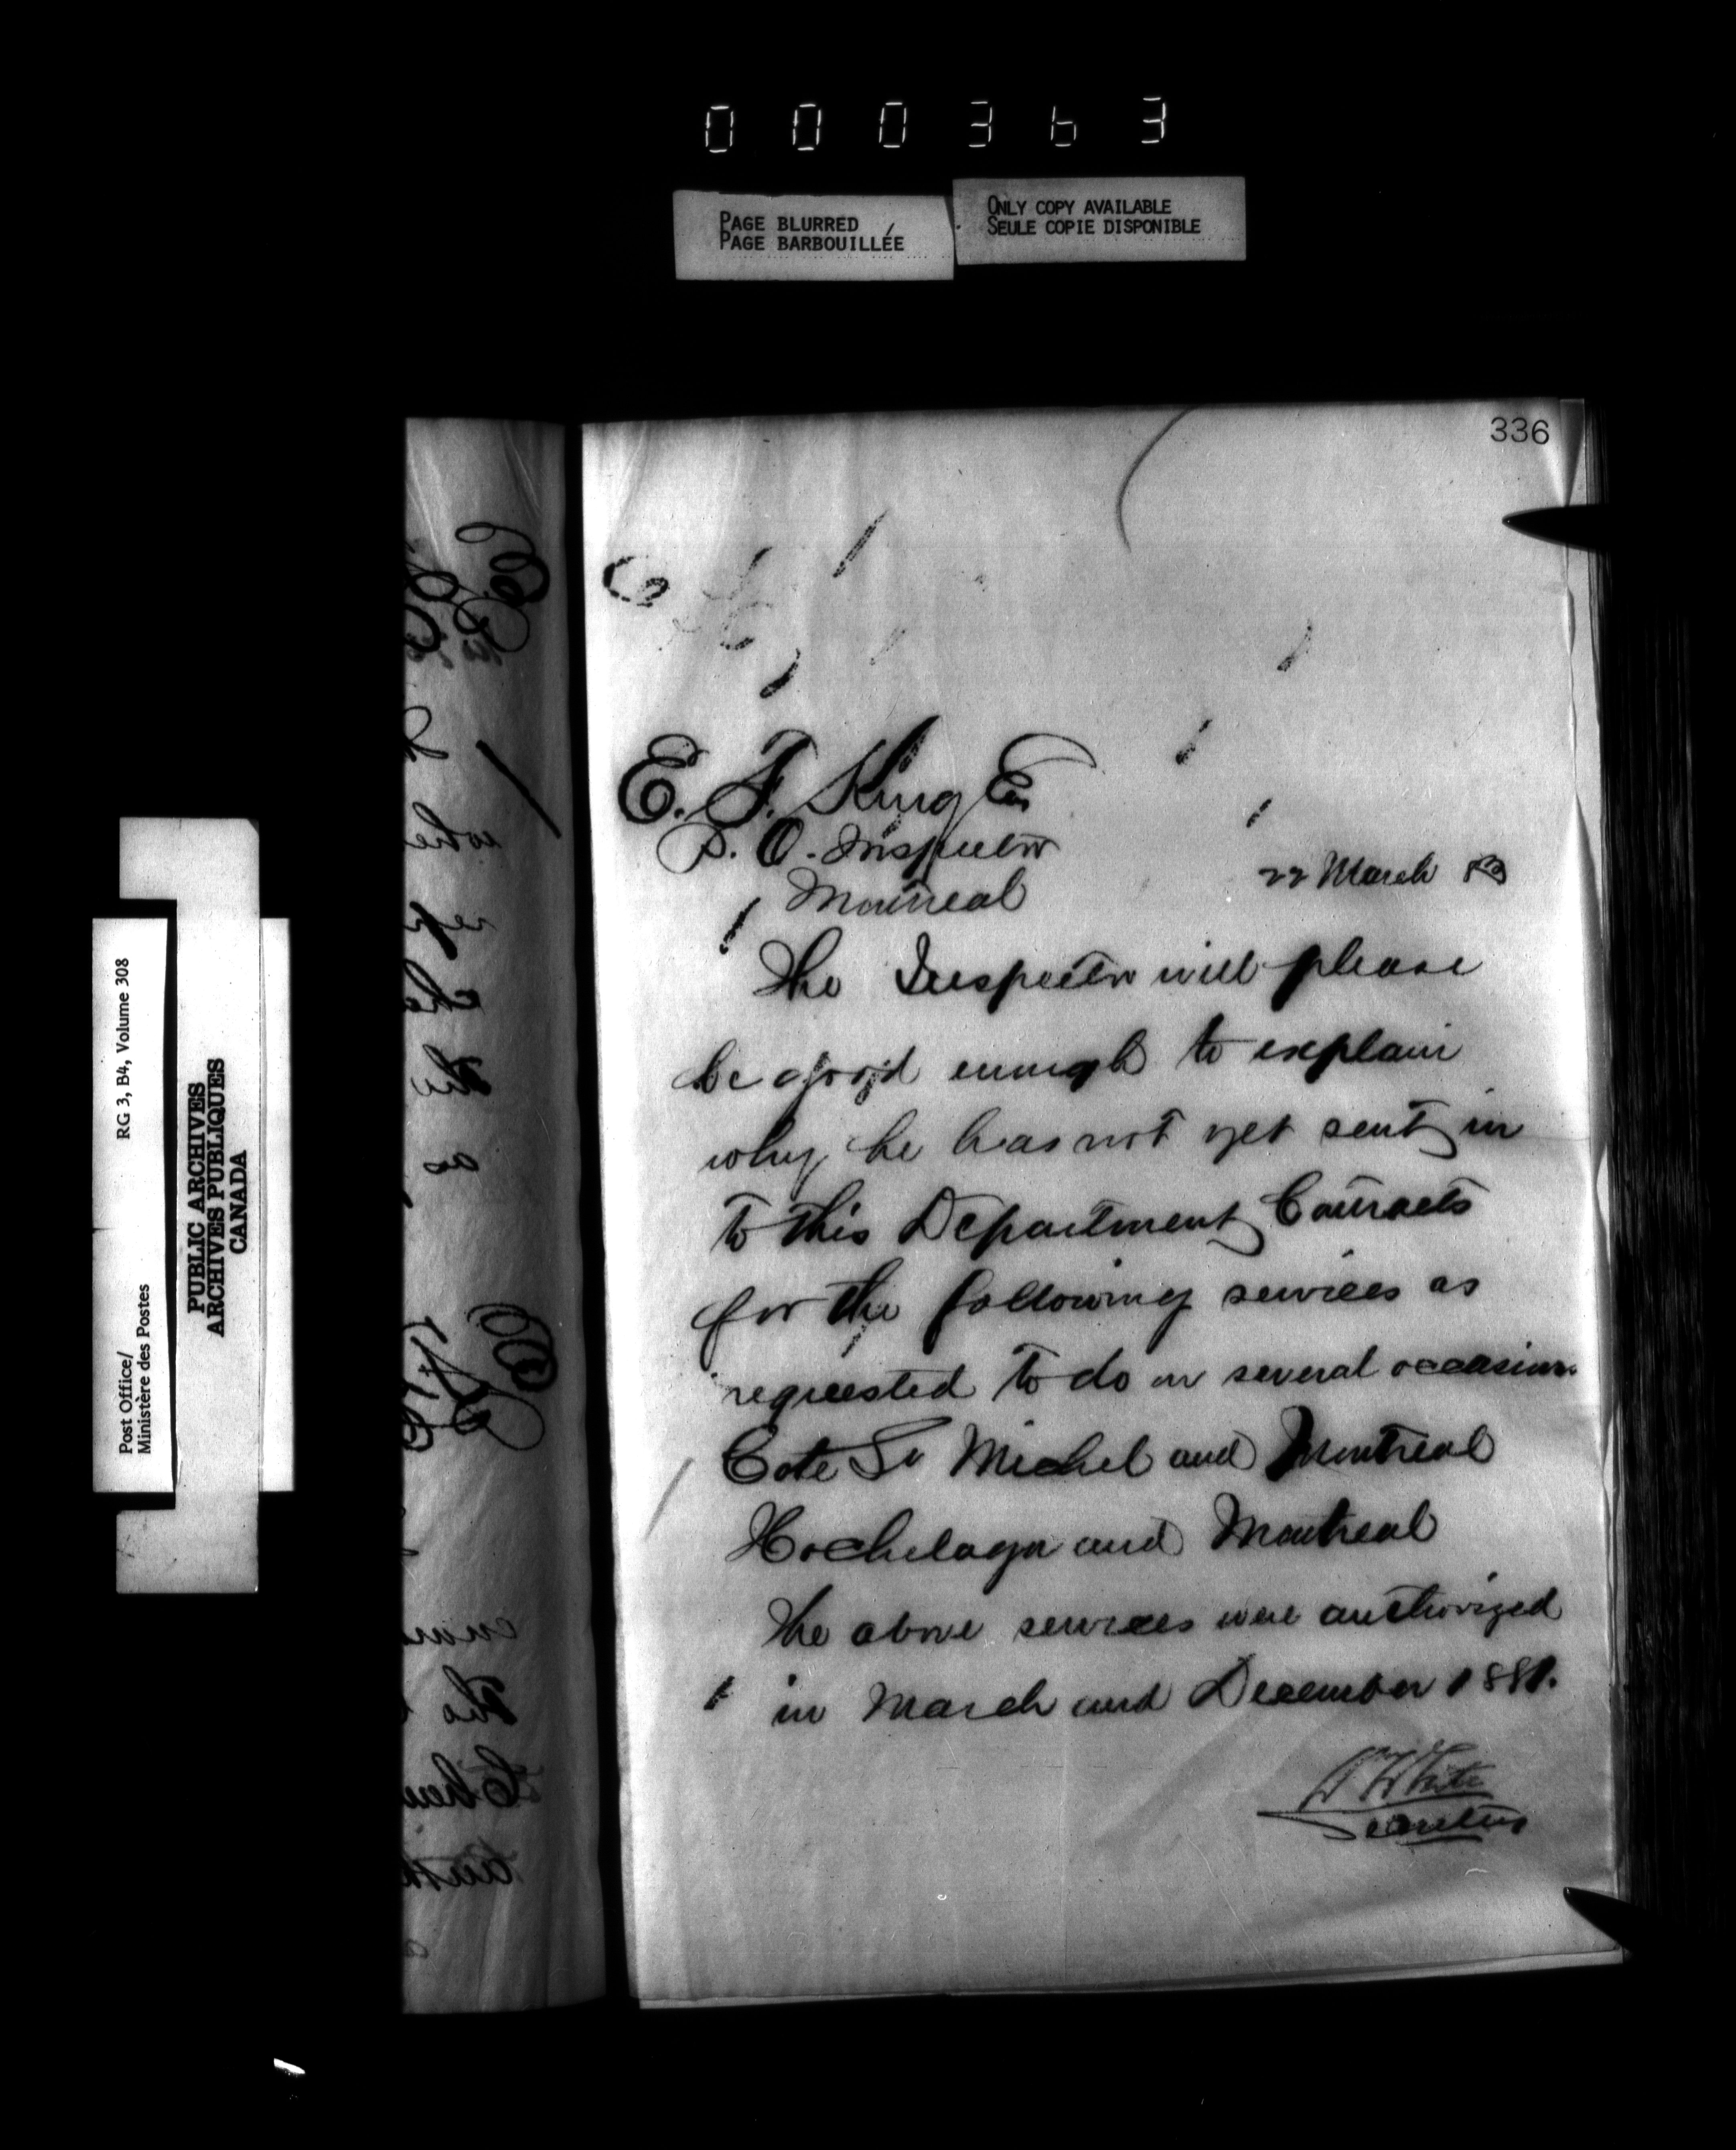 000363
PAGE BLURRED
PAGE BARBOUILLÉE
ONLY COPY AVAILABLE
SEULE COPIE DISPONIBLE
336
E. F. King Esq
P. O. Inspector
Montreal
22 March
The Inspector will please
be good enough to explain
why he has not yet sent in
to this Department Contracts
for the following services as
requested to do on several occasions
Cote St Michel and Montreal
Hochelaga and Montreal
The above services were authorized
in March and December 1881.
W White
Secretary
Post Office/
Ministère des Postes
RG 3, B4, Volume 308
PUBLIC ARCHIVES
ARCHIVES PUBLIQUES
CANADA